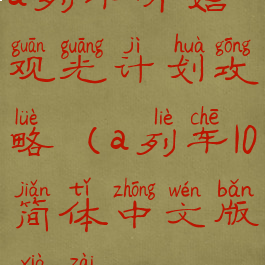 guān guāng jì huà gōng
观光计划攻
lüè liè chē
略 (a列车10
jiǎn tǐ zhōng wén bǎn
简体中文版
xià zài